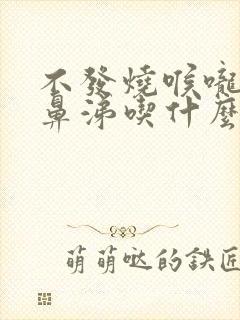 不發燒喉嚨
鼻涕喫什麼
萌萌哒的鉄匠